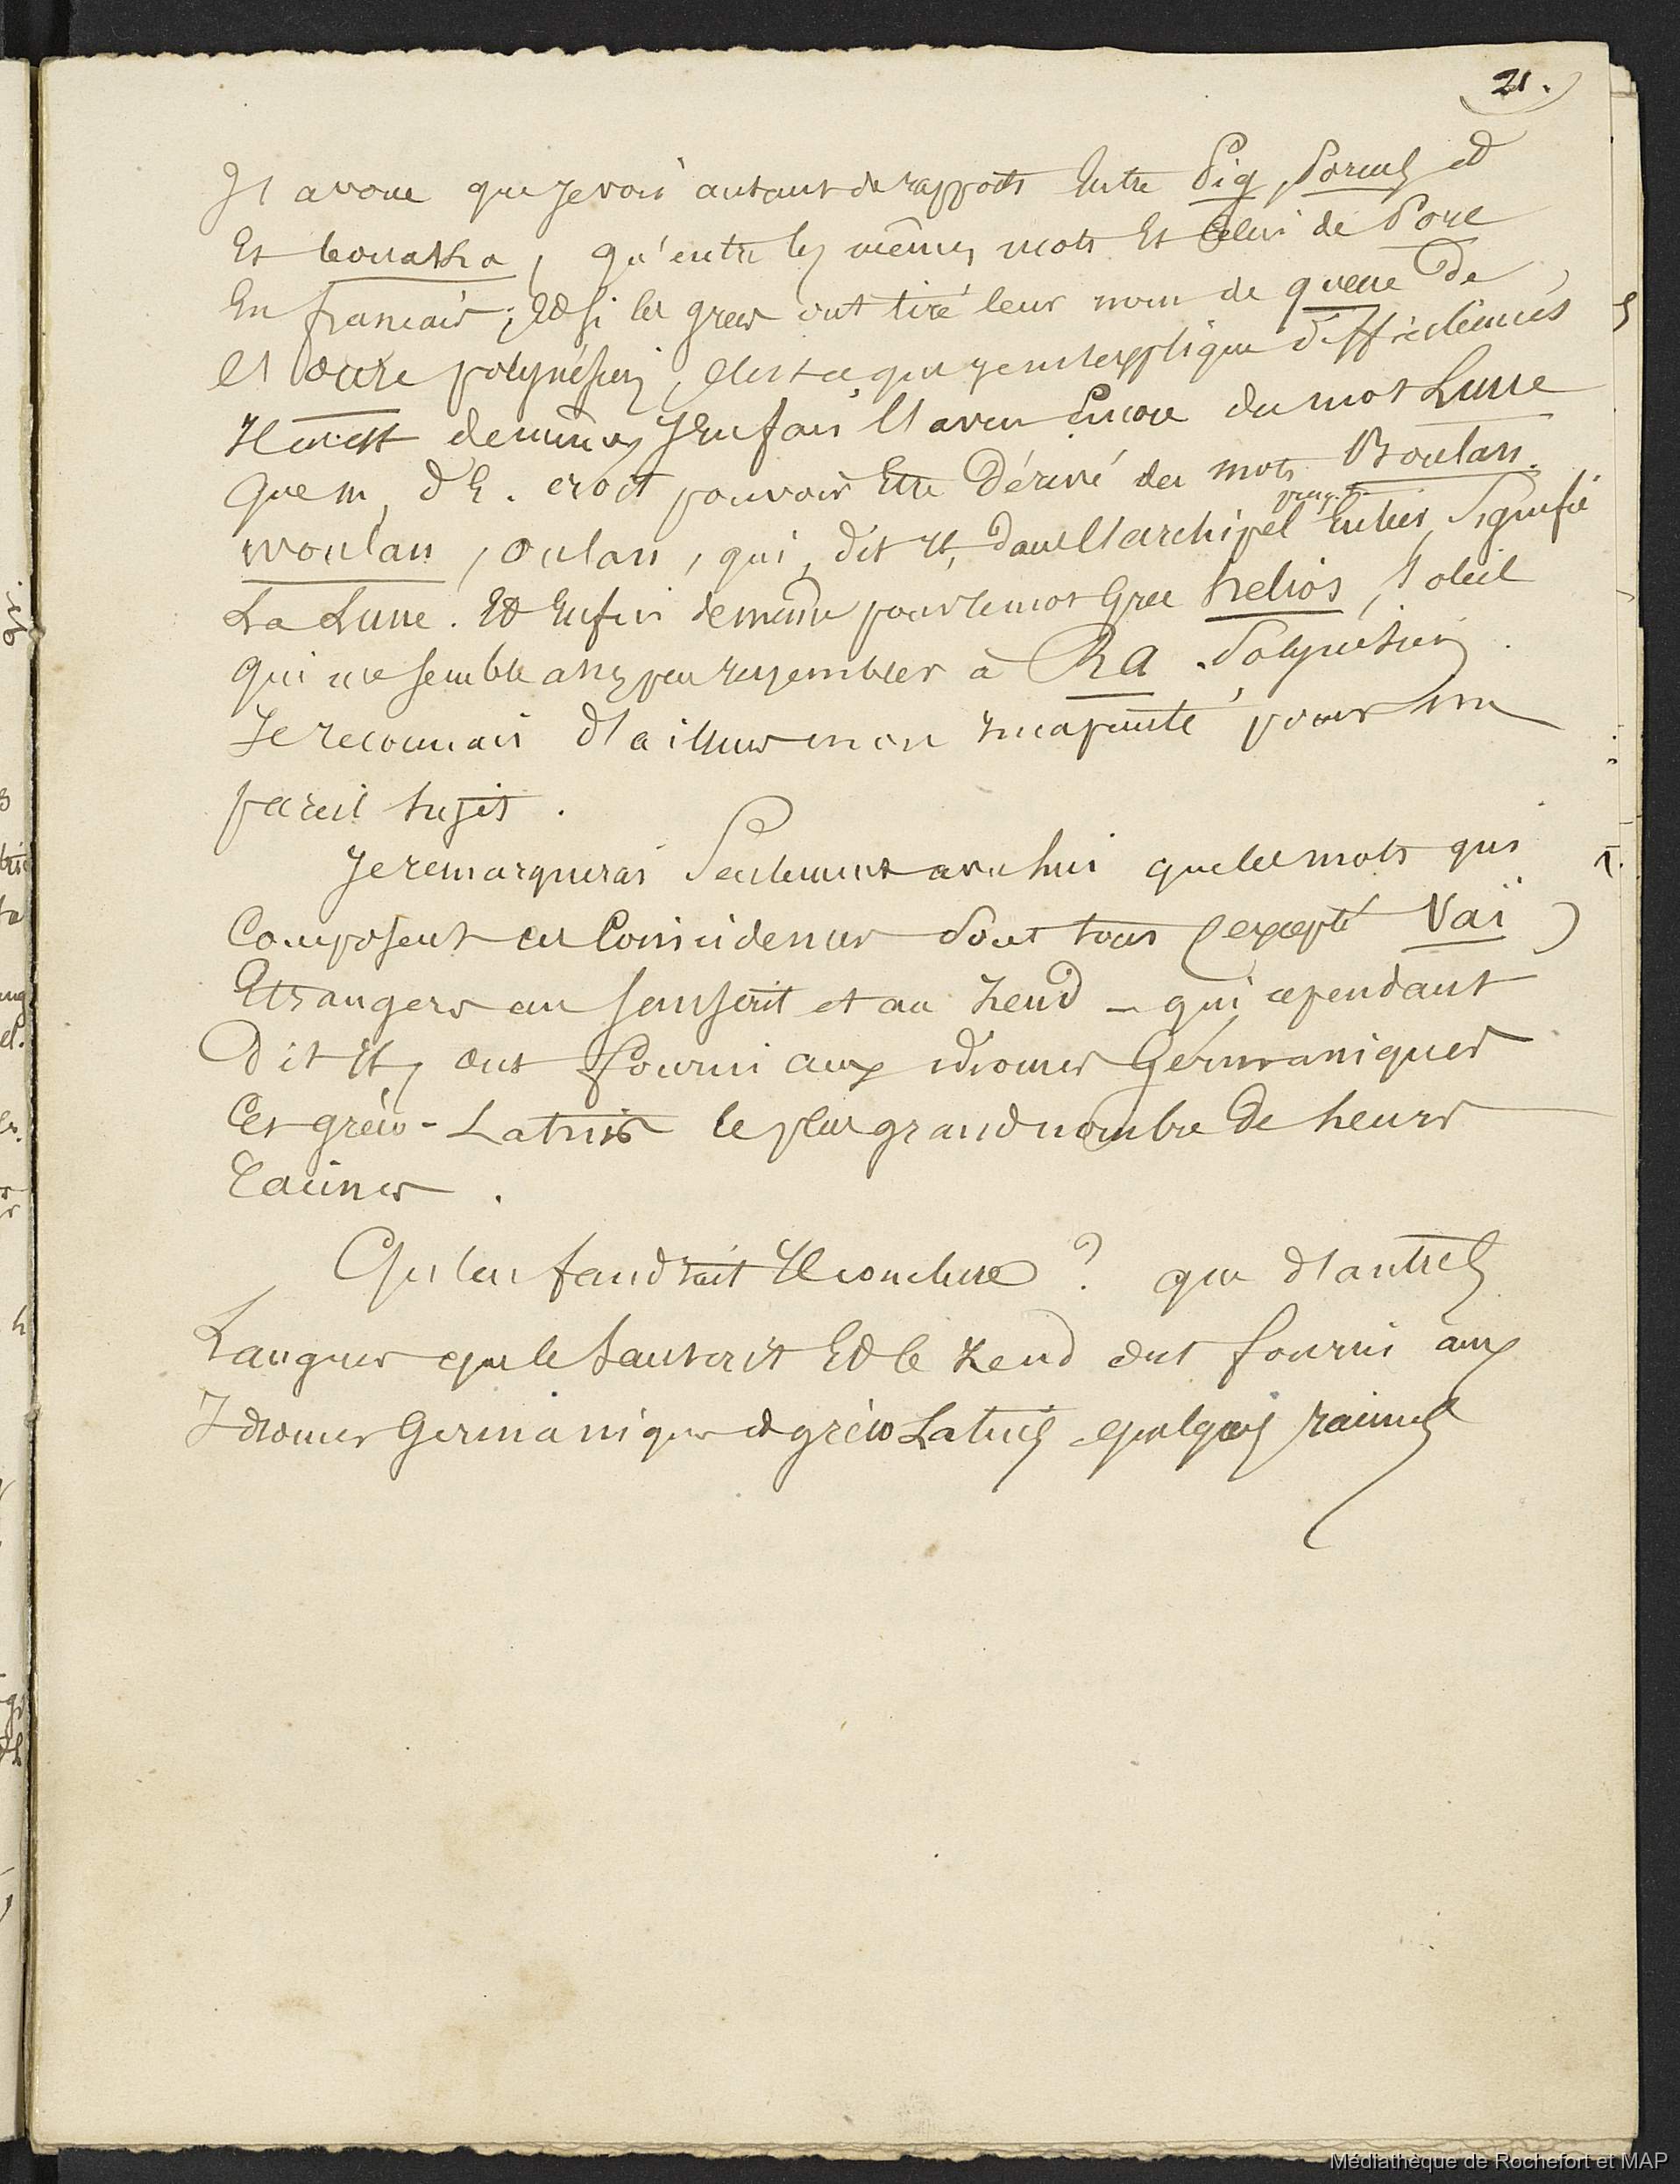 21.
J'avoue que je vois autant de rapports Entre Pig, Porcus et
Et bouakha, qu'entre les mêmes mots Et Celui de Porc
En français; Et si les grecs ont tiré leur nom de queue De
l'oure polynésien, c'est ce que je m'explique difficilement
Il en est de même, J'en fais l'aveu Encore du mot Lune
Que m. d'E. croit pouvoir Etre Dérivé des mots Boulan
woulan, oulan, qui, dit Il, Dans l'archipel Entier, Signifie
La Lune. Et Enfin de même pour le mot Grec helios, Soleil
qui me semble assez peu ressembler à Ra Polynésien.
Je reconnais d'ailleurs mon incapacité pour un
pareil sujet.
Je remarquerai Seulement avec lui que les mots qui
Composent ces Coincidences sont tous (excepté Vaï)
Etrangers au sanscrit et au Zend - qui cependant
Dit Il, ont fourni aux idiomes Germaniques
Et gréco-Latins le plus grand nombre De leurs
Racines.
Qu'en faudrait Il conclure? que d'autres
Langues que le Sanscrit Et le Zend ont fourni aux
Idiomes Germaniques et gréco Latins quelques racines
Médiathèque de Rochefort et MAP